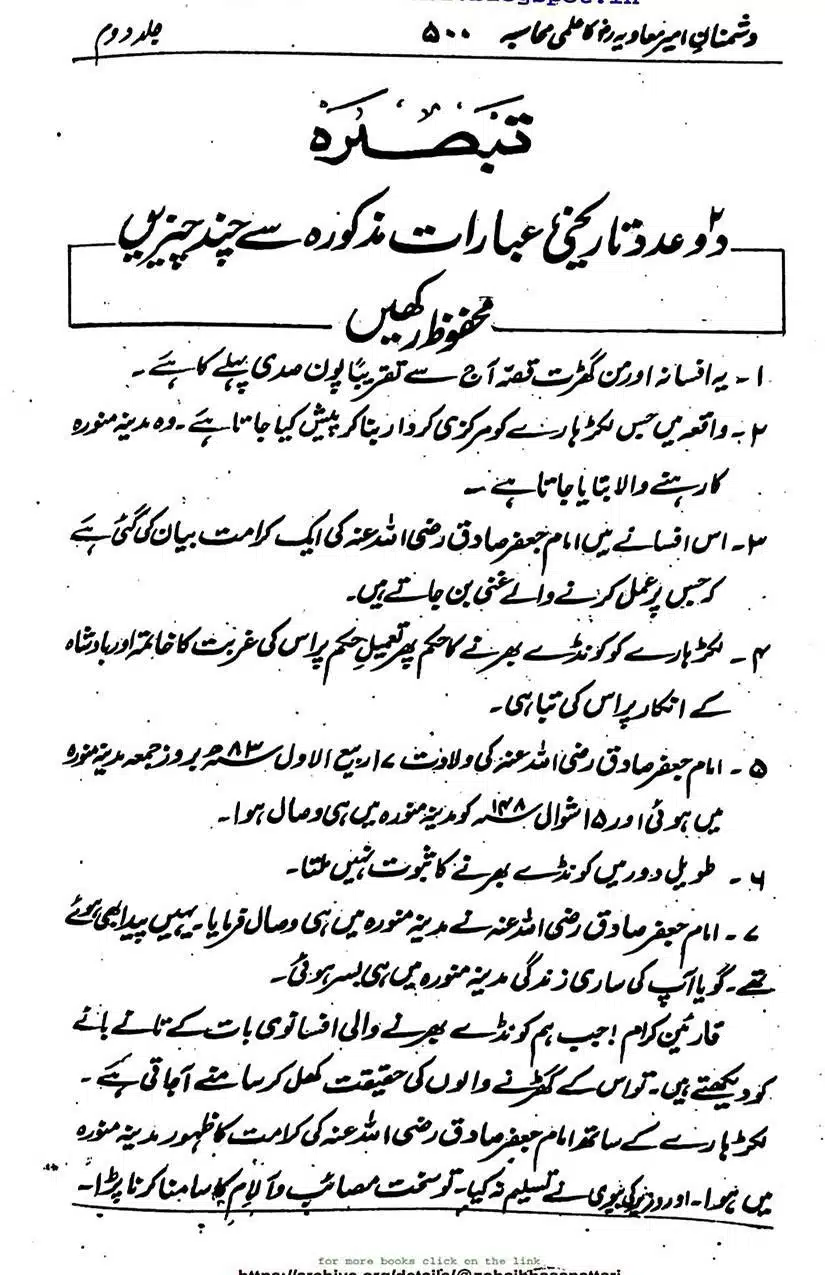 دشمنانِ امیر معاویہ رضؓ کا علمی محاسبہ ۵۰۰ جلد دوم
تبصرہ
دو ۲ عدد تاریخی عبارات مذکورہ سے چند چیزیں
محفوظ رکھیں
۱۔ یہ افسانہ اور من گھڑت قصّہ آج سے تقریبًا پون صدی پہلے کا ہے۔
۲۔ واقعہ میں جس لکڑہارے کو مرکزی کردار بنا کر پیش کیا جاتا ہے۔ وہ مدینہ منورہ
کا رہنے والا بتایا جاتا ہے۔
۳۔ اس افسانے میں امام جعفر صادق رضی اللہ عنہ کی ایک کرامت بیان کی گئی ہے
کہ جس پر عمل کرنے والے غنی بن جاتے ہیں۔
۴۔ لکڑہارے کو کونڈے بھرنے کا حکم پھر تعمیلِ حکم پر اس کی غربت کا خاتمہ اور بادشاہ
کے انکار پر اس کی تباہی۔
۵۔ امام جعفر صادق رضی اللہ عنہ کی ولادت ۱۷ ربیع الاول ۸۳ھ بروز جمعہ مدینہ منورہ
میں ہوئی اور ۱۵ شوال ۱۴۸ھ کو مدینہ منورہ میں ہی وصال ہوا۔
۶۔ طویل دور میں کونڈے بھرنے کا ثبوت نہیں ملتا۔
۷۔ امام جعفر صادق رضی اللہ عنہ نے مدینہ منورہ میں ہی وصال فرمایا۔ یہیں پیدا بھی ہوئے
تھے۔ گویا آپ کی ساری زندگی مدینہ منورہ میں ہی بسر ہوئی۔
قارئین کرام! جب ہم کونڈے بھرنے والی افسانوی بات کے تانے بانے
کو دیکھتے ہیں۔ تو اس کے گھڑنے والوں کی حقیقت کھل کر سامنے آجاتی ہے۔
لکڑہارے کے ساتھ امام جعفر صادق رضی اللہ عنہ کی کرامت کا ظہور مدینہ منورہ
میں ہوا۔ اور وزیر کی بیوی نے تسلیم نہ کیا۔ تو سخت مصائب و آلام کا سامنا کرنا پڑا۔
for more books click on the link